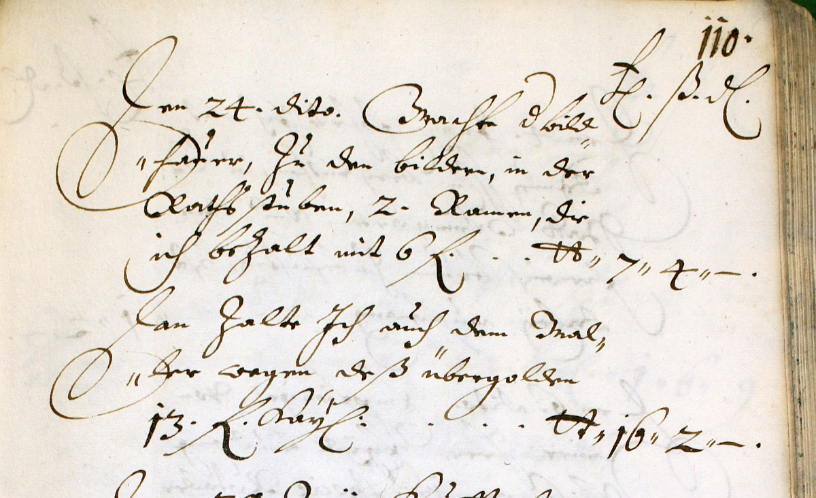 110.
fl. ß. dl.
Den 24. dito. Machte d bild„
„hauer, Zu den bildern, in der
Rathsstuben, 2. Ramen, die
ich bezalt mit 6 f. . . . tt„ 7„ 4„ —.
Dan Zalte Ich auch dem Mal„
„ler wegen deß übergolden
13. f. . . . . tt„ 16„ 2„ —.